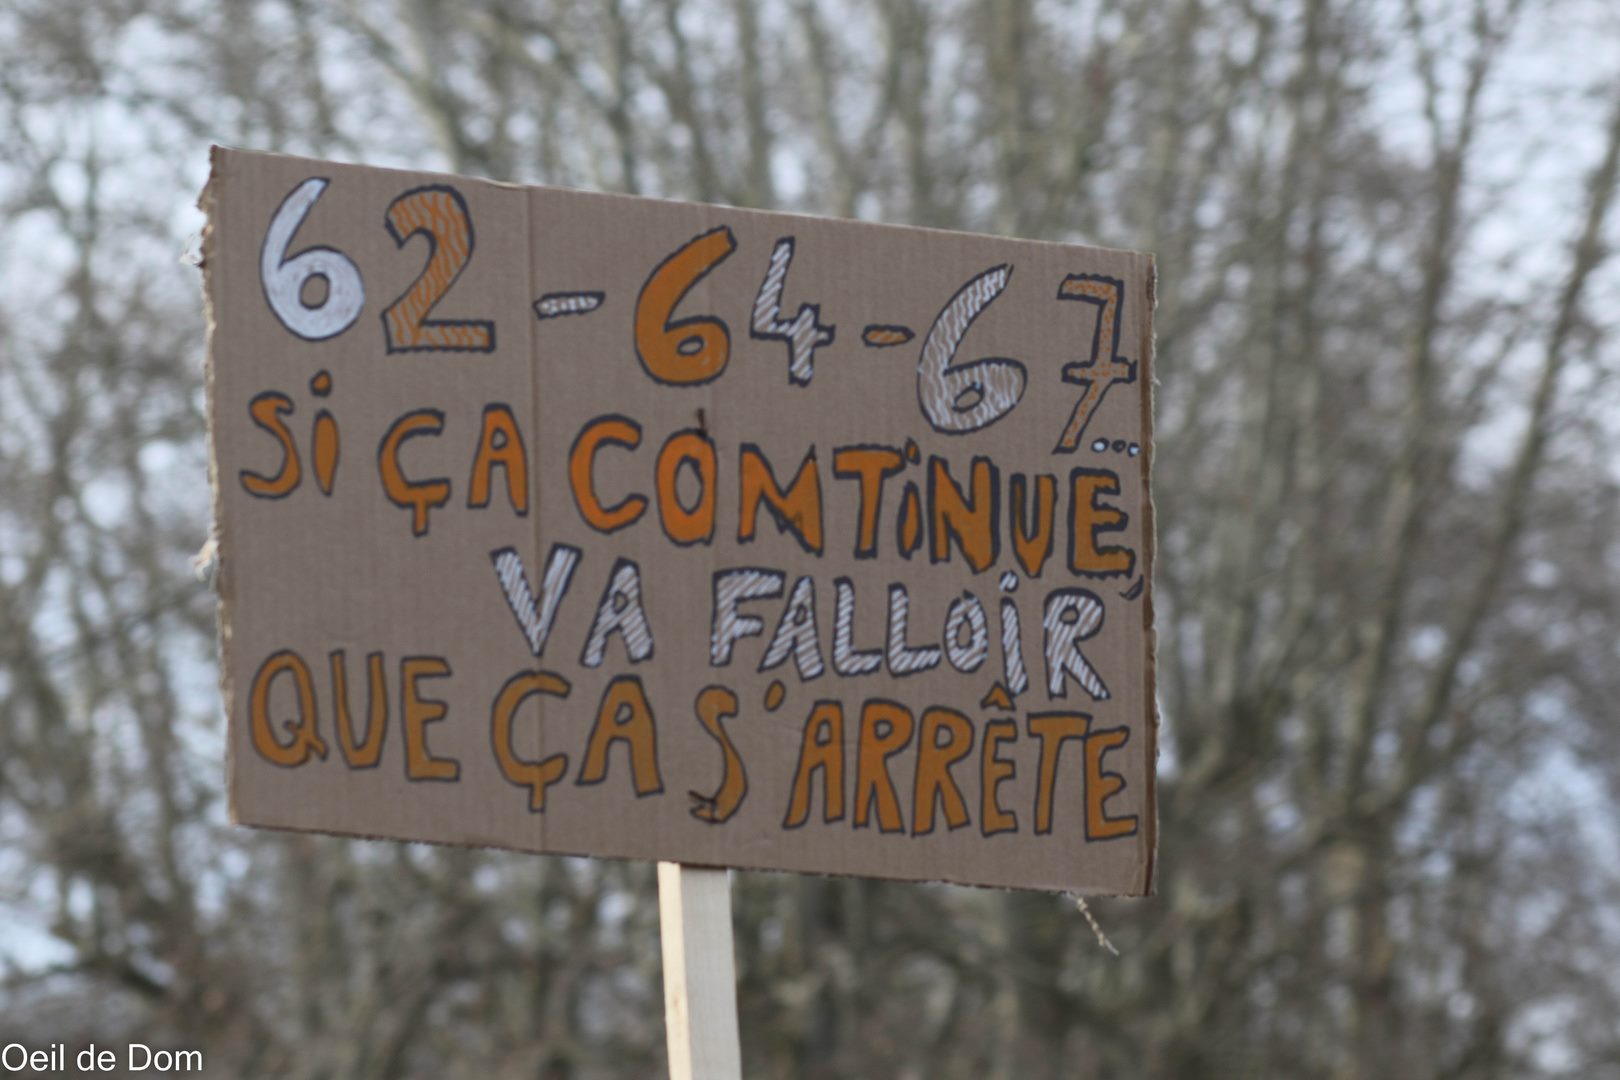 62-64-67...
Si ÇA CONTiNUE,
VA FALLOiR
QUE ÇA S'ARRÊTE
Oeil de Dom